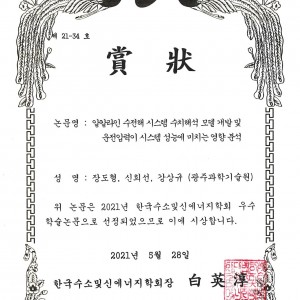 제 21-34 호
賞 狀
논문명 : 알칼라인 수전해 시스템 수치해석 모델 개발 및
운전압력이 시스템 성능에 미치는 영향 분석
성 명 : 장도형, 신희선, 강상규 (광주과학기술원)
위 논문은 2021년 한국수소및신에너지학회 우수
학술논문으로 선정되었으므로 이에 시상합니다.
2021년 5월 28일
한국수소및신에너지학회장 白英淳